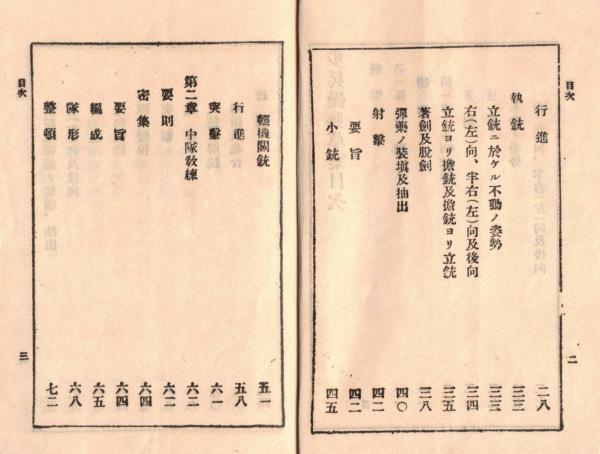 目次
行進 二八
執銃 三三
立銃ニ於ケル不動ノ姿勢 三三
右(左)向、半右(左)向及後向 三四
立銃ヨリ擔銃及擔銃ヨリ立銃 三五
著劍及脱劍 三八
彈藥ノ裝塡及抽出 四〇
射擊 四二
要旨 四二
小銃 四五
二
輕機關銃 五一
行進 五八
突擊 六一
第二章 中隊敎練 六二
要則 六二
密集 六四
要旨 六四
編成 六五
隊形 六八
整頓 七二
目次
三